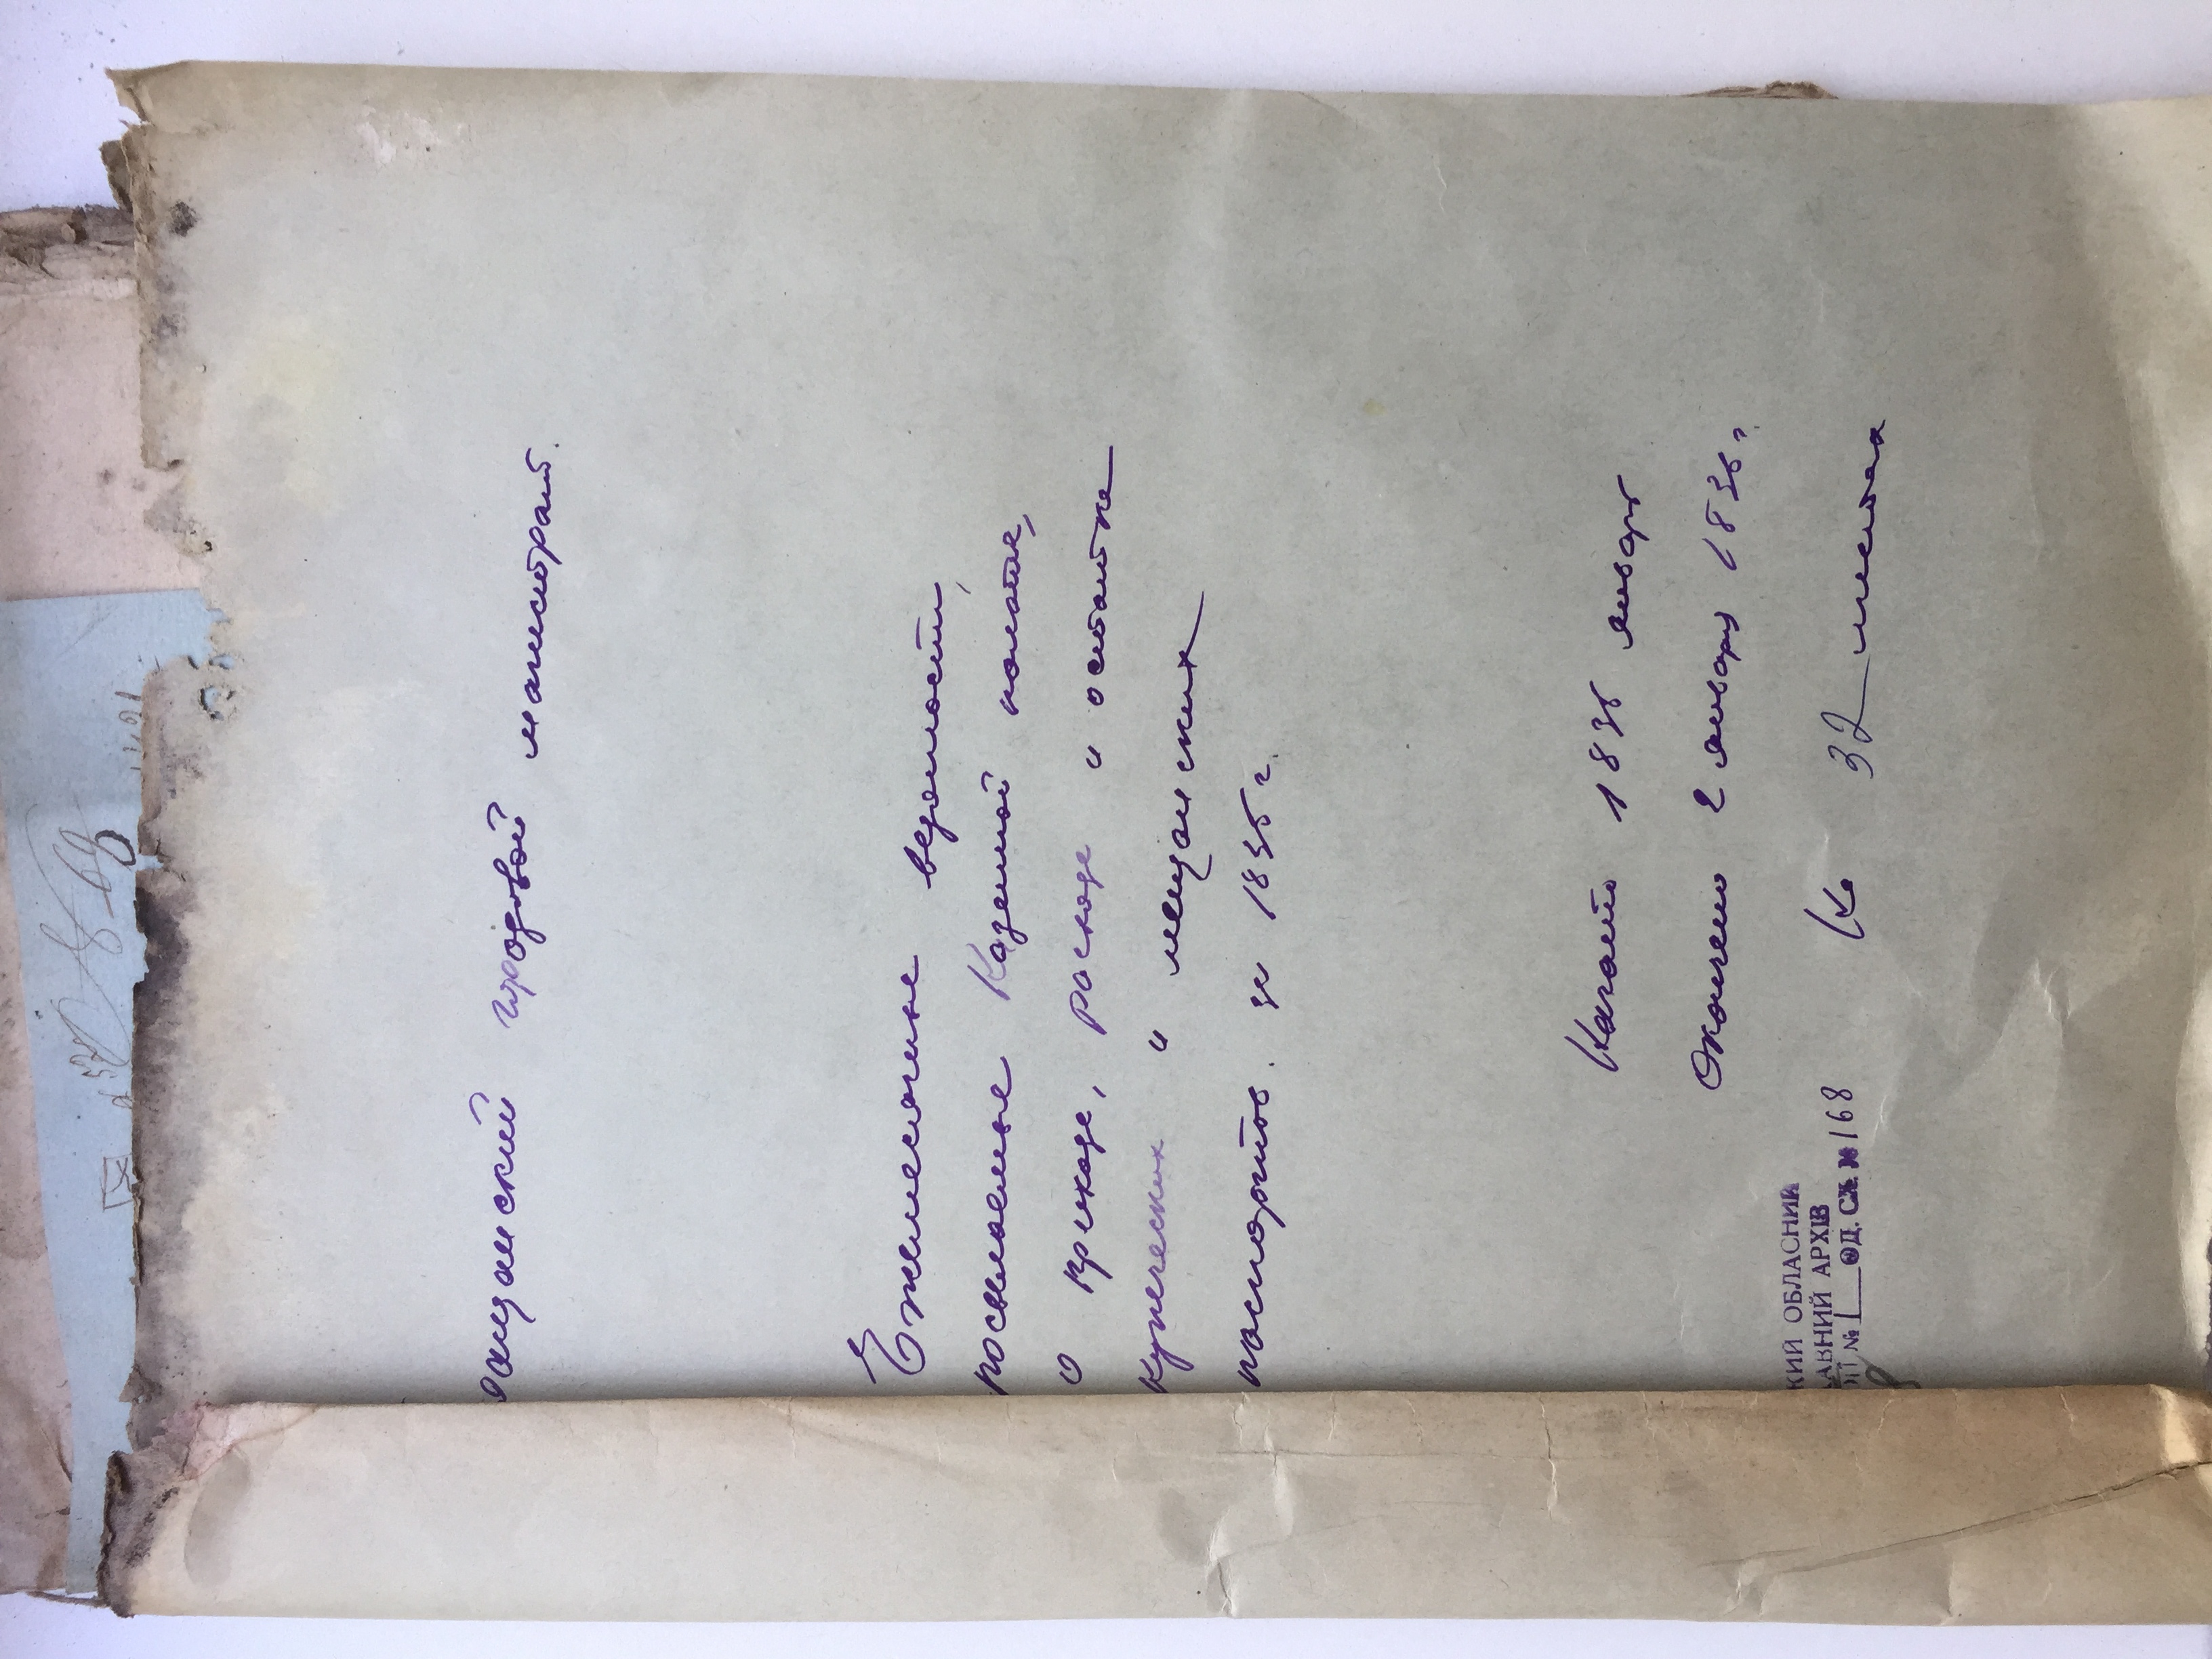 ещанский городовой магистрат.
Ежемесячные ведомости,
посылаемые Казенной палате,
о приходе, расходе и остатке
купеческих и мещанских
паспортов. за 1835 г.
Начато 1835 январь
Окончено 2 января 1836 г.
На 32 листах
КИЙ ОБЛАСНИЙ
АВНИЙ АРХІВ
№ 1 ОД. СХ. № 168